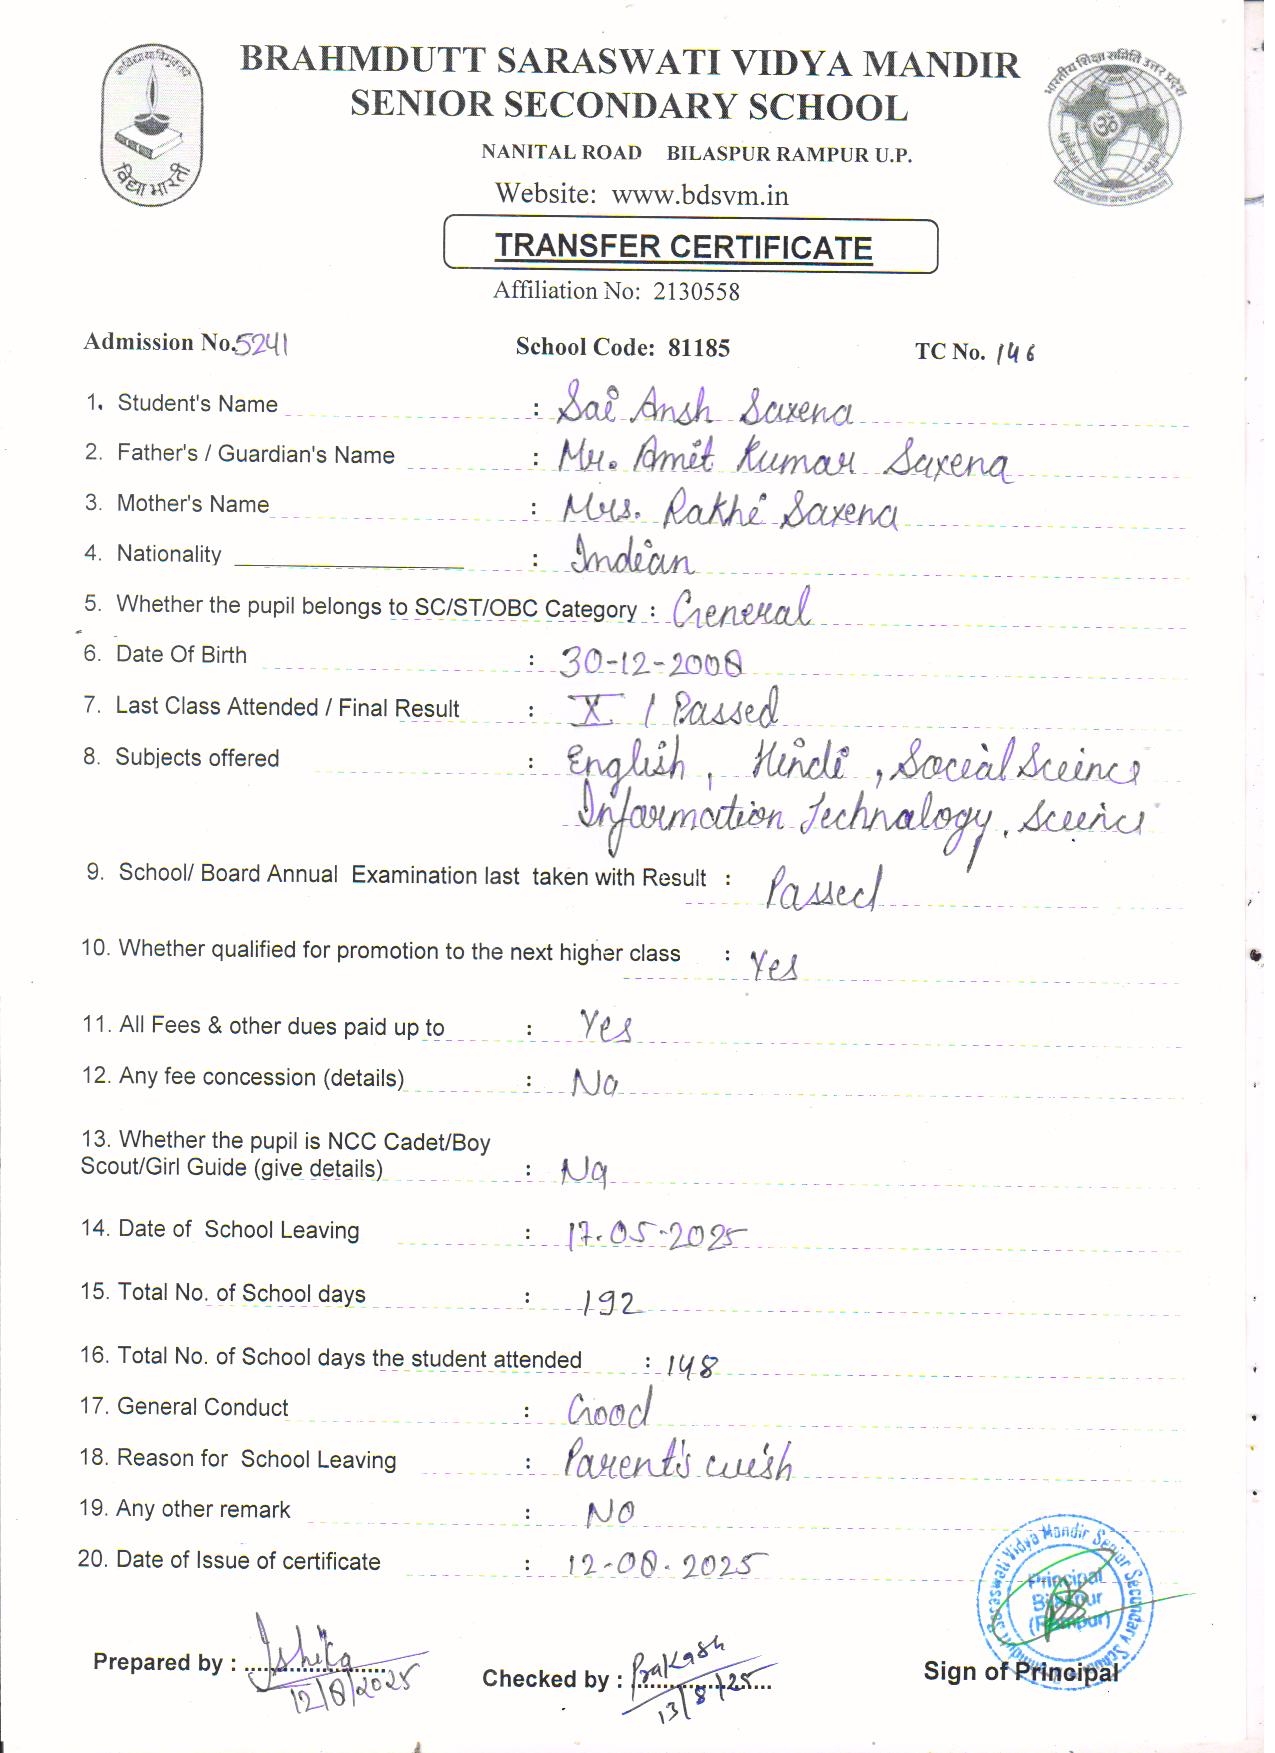 BRAHMDUTT SARASWATI VIDYA MANDIR
SENIOR SECONDARY SCHOOL
NANITAL ROAD BILASPUR RAMPUR U.P.
Website: www.bdsvm.in
विद्या भारती
भारतीय शिक्षा समिति उत्तर प्रदेश
TRANSFER CERTIFICATE
Affiliation No: 2130558
Admission No. 5241 School Code: 81185 TC No. 146
1. Student's Name : Sai Ansh Saxena
2. Father's / Guardian's Name : Mr. Amit Kumar Saxena
3. Mother's Name : Mrs. Rakhi Saxena
4. Nationality : Indian
5. Whether the pupil belongs to SC/ST/OBC Category : General
6. Date Of Birth : 30-12-2008
7. Last Class Attended / Final Result : X / Passed
8. Subjects offered : English, Hindi, Social Sceince
Information Technology, Sceince
9. School/ Board Annual Examination last taken with Result : Passed
10. Whether qualified for promotion to the next higher class : Yes
11. All Fees & other dues paid up to : Yes
12. Any fee concession (details) : No
13. Whether the pupil is NCC Cadet/Boy
Scout/Girl Guide (give details) : No
14. Date of School Leaving : 17.05-2025
15. Total No. of School days : 192
16. Total No. of School days the student attended : 148
17. General Conduct : Good
18. Reason for School Leaving : Parent's wish
19. Any other remark : NO
20. Date of Issue of certificate : 12-08-2025
Saraswati Vidya Mandir Senior Secondary School
Principal
Bilaspur
(Rampur)
Prepared by : Ishika
12/8/2025
Checked by : Prakash
13/8/25
Sign of Principal